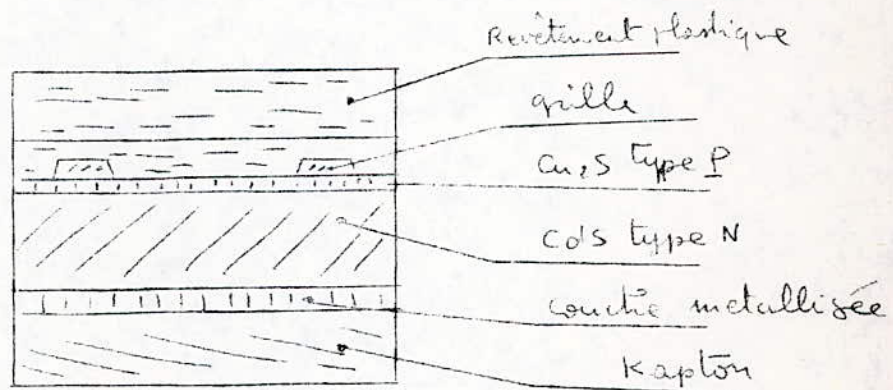 Revêtement plastique
grille
Cu₂S type P
CdS type N
couche metallisée
Kapton